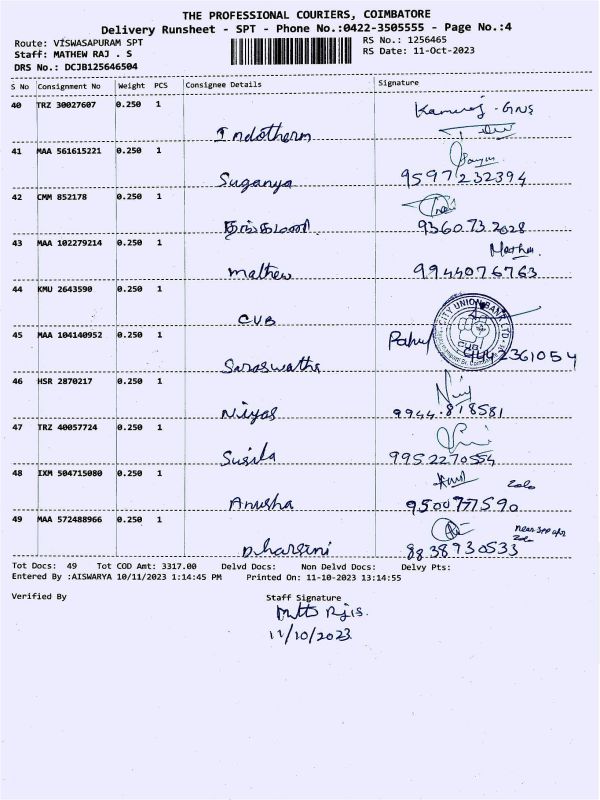 THE PROFESSIONAL COURIERS, COIMBATORE
Delivery Runsheet - SPT - Phone No.:0422-3505555 - Page No.:4
Route: VISWASAPURAM SPT
RS No.: 1256465
Staff: MATHEW RAJ . S
RS Date: 11-Oct-2023
DRS No.: DCJB125646504
S No Consignment No Weight PCS Consignee Details Signature
40 TRZ 30027607 0.250 1
Indotherm
41 MAA 561615221 0.250 1
Suganya 9597232394
42 CMM 852178 0.250 1
9360732028
43 MAA 102279214 0.250 1
mathew 9944076763
44 KMU 2643590 0.250 1
CUB
CITY UNION BANK LTD
45 MAA 104140952 0.250 1
Saraswathi 9442361054
46 HSR 2870217 0.250 1
Niyas 9944818581
47 TRZ 40057724 0.250 1
Susila 9952270554
48 IXM 504715080 0.250 1
Zolo
Anusha 9500777590
49 MAA 572488966 0.250 1
Dharsini 8838930533
Tot Docs: 49 Tot COD Amt: 3317.00 Delvd Docs: Non Delvd Docs: Delvy Pts:
Entered By :AISWARYA 10/11/2023 1:14:45 PM Printed On: 11-10-2023 13:14:55
Verified By Staff Signature
11/10/2023